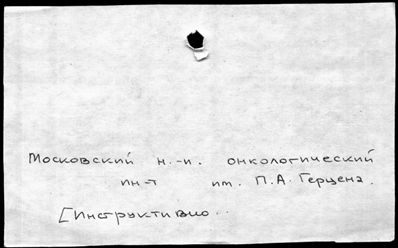 Московский н.-и. онкологический
ин-т им. П.А. Герцена.
[Инструктивно..